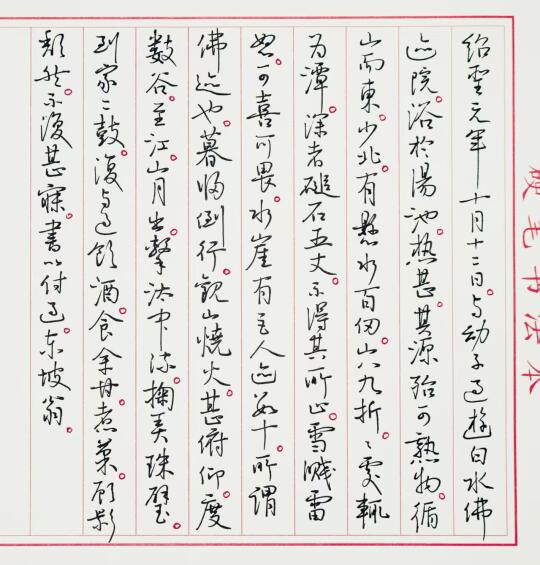 绍聖元年十月十二日。与幼子过遊白水佛
迹院。浴於湯池。热甚。其源殆可熟物。循
山而東。少北。有懸水百仞。山八九折。々處輒
为潭。深者磓石五丈。不得其所止。雪溅雷
怒。可喜可畏。水崖有巨人迹数十。所謂
佛迹也。暮归倒行。觀山燒火。甚俯仰。度
數谷。至江。山月出。擊汰中流。掬弄珠璧。
到家二鼓。復与过飲酒。食余甘。煮菜。顾影
颓然。不復甚寐。書以付过。东坡翁。
硬毛书法本